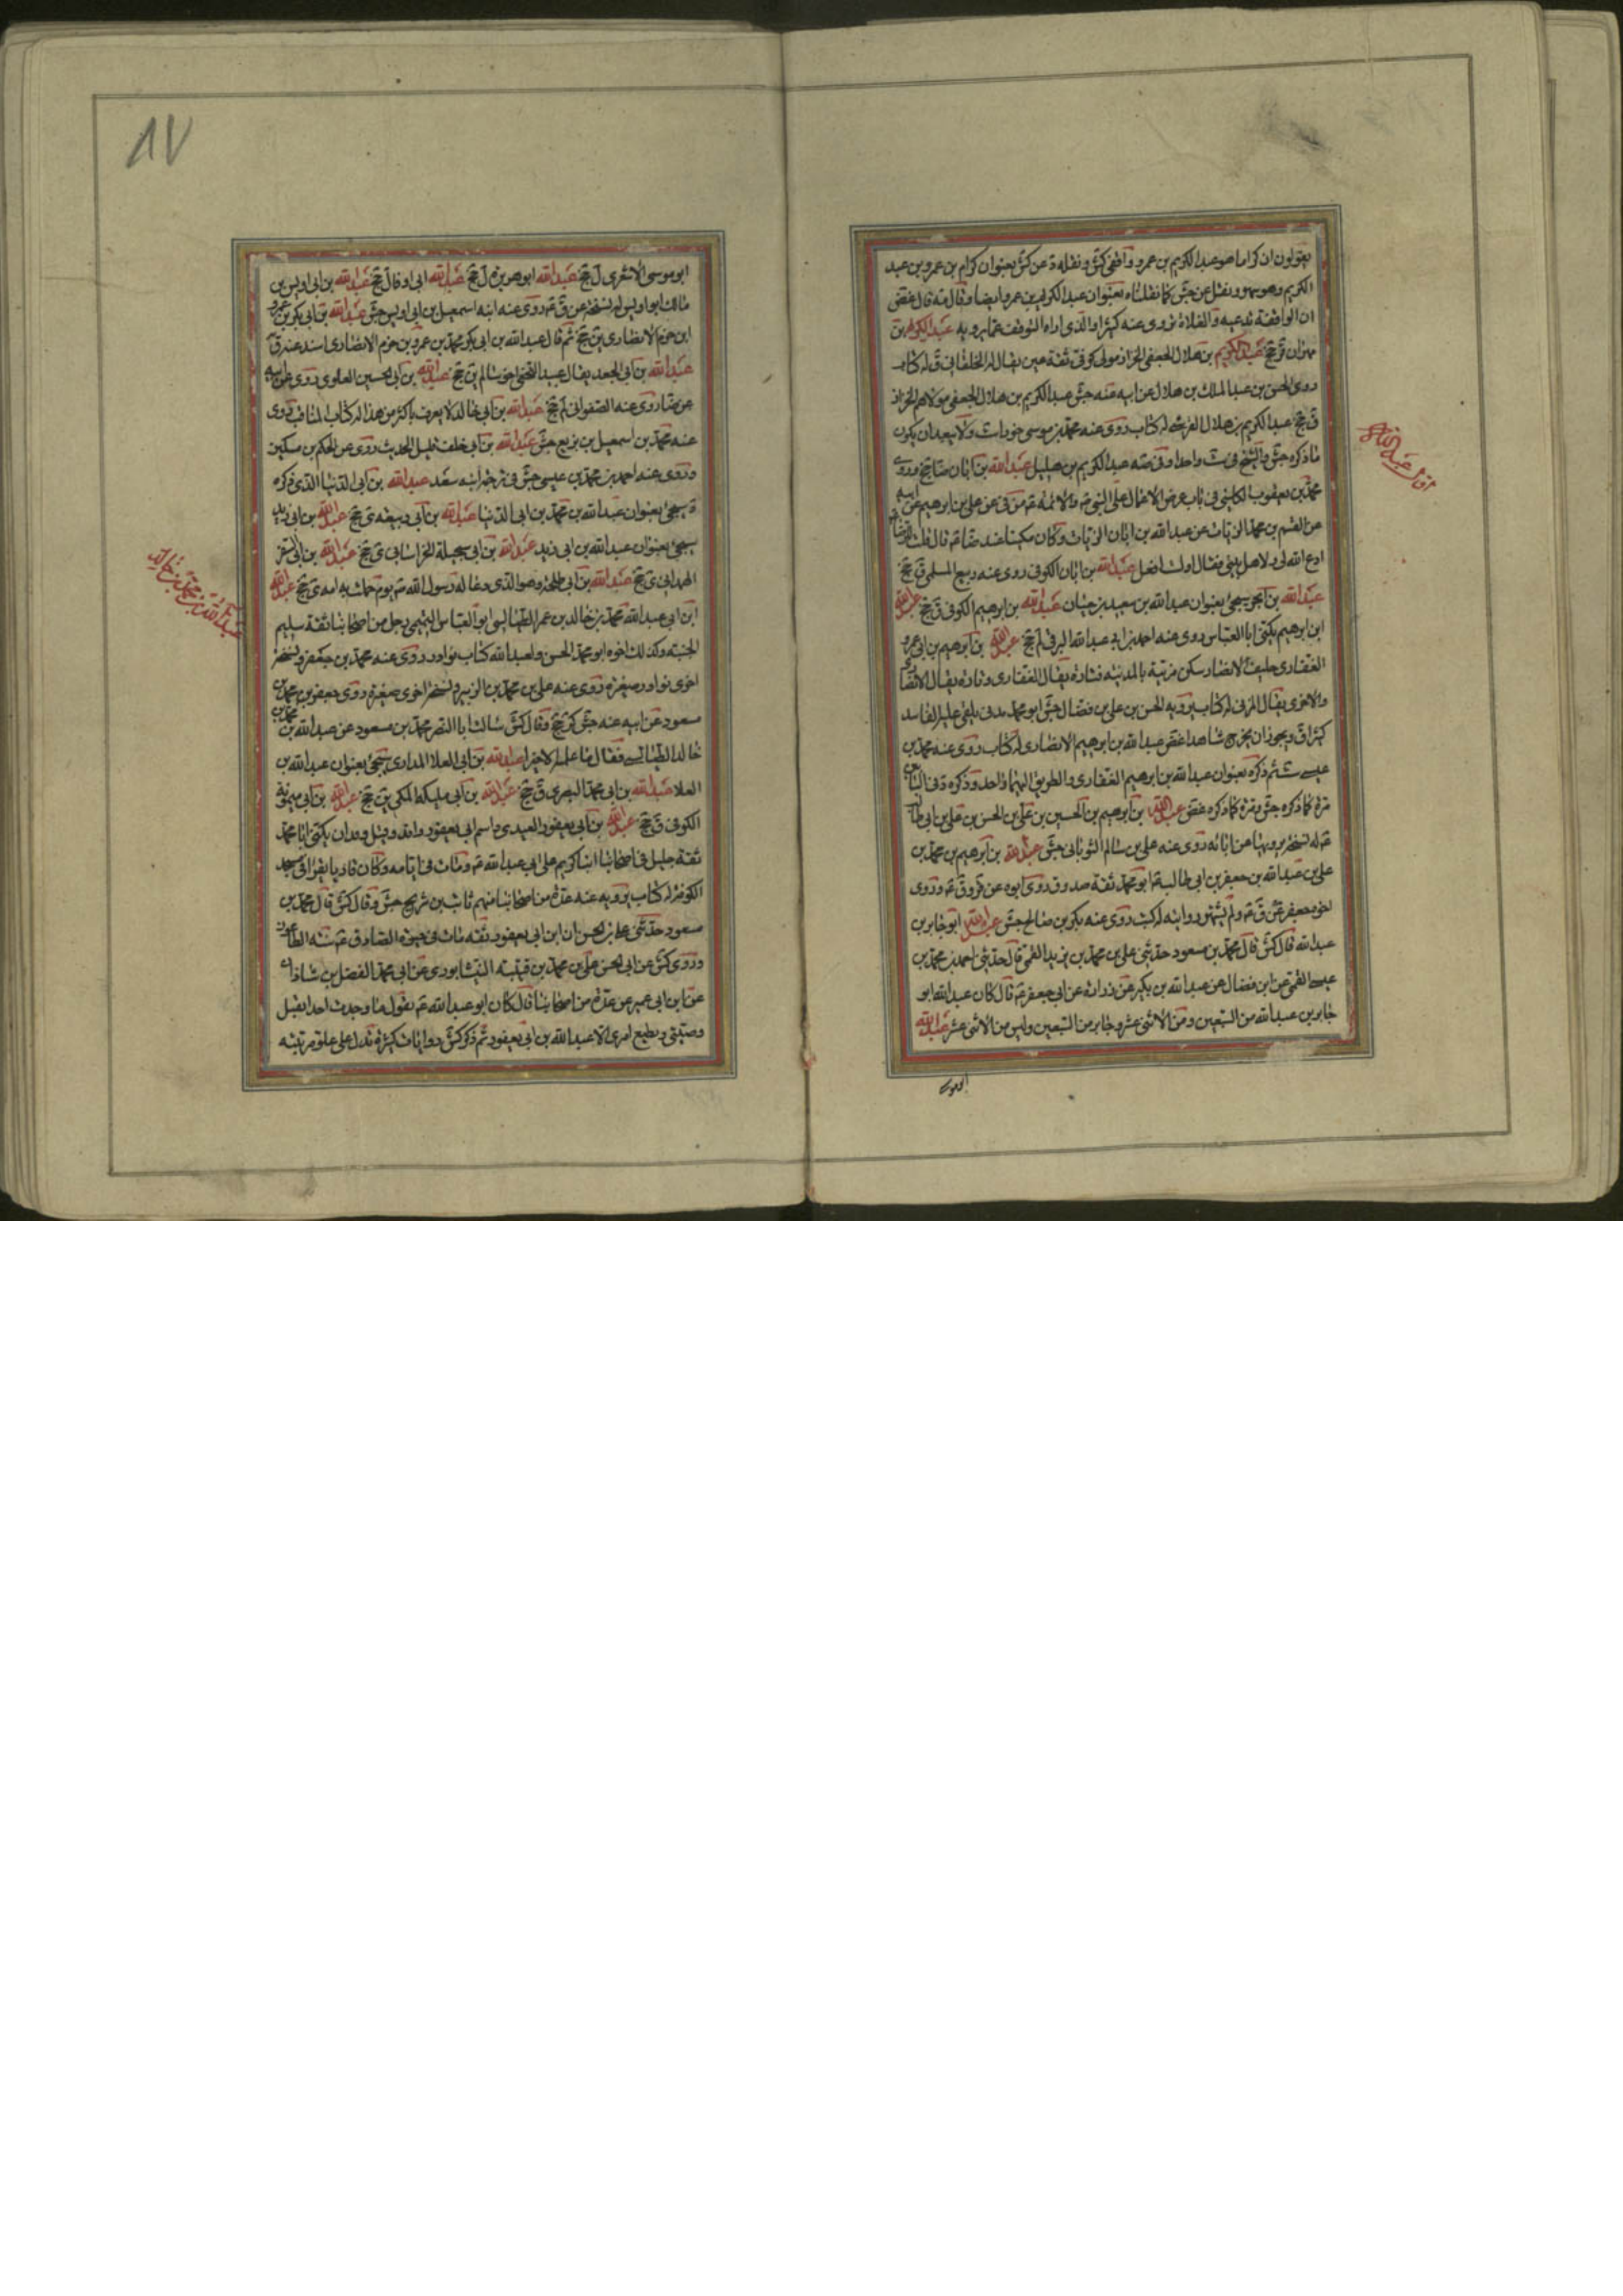 يقولون ان كراما هو عبد الكريم بن عمرو واقفى كش ونقله د عن كش بعنوان كرام بن عمرو بن عبد
الكريم وهو سهو ونقل عن جش كما نقلناه بعنوان عبد الكريم بن عمرو ايضا وقال فيه قال غض
ان الواقفة تدعيه والغلاة تروى عنه كثيرا والذى اراه التوقف عما يرويه عبد الكريم بن
مهران ق جخ عبد الكريم بن هلال الجعفى الخزاز مولى كوفى ثقة عين يقال له الخلقانى ق له كتاب
روى الحسن بن عبد الملك بن هلال عن ابيه عنه جش عبد الكريم بن هلال الجعفى مولاهم الخزاز
ق جخ عبد الكريم بن هلال القرشى له كتاب روى عنه محمد بن موسى خوراء ست ولا يبعد ان يكون
ما ذكره جش والشيخ فى ست واحدا عبد الكريم بن هليل عبد الله بن ابان ضا جخ وروى
محمد بن يعقوب الكلينى فى باب عرض الاعمال على النبى ص والائمة ع من فى عن على بن ابرهيم عن ابيه
عن القسم بن محمد الزيات عن عبد الله بن ابان الزيات وكان مكينا عند ضا ع قال قلت للرضا ع
ادع الله لى ولاهل بيتى فقال اولست افعل عبد الله بن ابان الكوفى روى عنه ربيع المسلمى ق جخ
عبد الله بن ابجر سيجئ بعنوان عبد الله بن سعيد بن حيان عبد الله بن ابرهيم الكوفى ق جخ عبد الله
ابن ابرهيم يكنى ابا العباس روى عنه احمد بن ابى عبد الله البرقى لم جخ عبد الله بن ابرهيم بن ابى عمرو
الغفارى حليف الانصار سكن مزينة بالمدينة فتارة يقال الغفارى وتارة يقال الانصارى
والاخرى يقال المزنى له كتاب يرويه الحسن بن على بن فضال جش ابو محمد مدنى يلقى عليه الفاسد
كثيرا ق ويجوز ان يخرج شاهدا غض عبد الله بن ابرهيم الانصارى له كتاب روى عنه محمد بن
عيسى ست ثم ذكره بعنوان عبد الله بن ابرهيم الغفارى والطريق اليهما واحد وذكره د فى البابين
مرة كما ذكره جش ومرة كما ذكره غض عبد الله بن ابرهيم بن الحسين بن على بن الحسن بن على بن ابى طالب
ع له نسخة يرويها عن ابائه روى عنه على بن سالم الثوبانى جش عبد الله بن ابرهيم بن محمد بن
على بن عبد الله بن جعفر بن ابى طالب ع ابو محمد ثقة صدوق روى ابوه عن قر وق ع وروى
اخوه جعفر عن ق ع ولم يشتهر روايته له كتب روى عنه بكر بن صالح جش عبد الله ابو جابر بن
عبد الله قال كش قال محمد بن مسعود حدثنى على بن محمد بن يزيد القمى قال حدثنى احمد بن محمد بن
عيسى القمى عن ابن فضال عن عبد الله بن بكير عن زرارة عن ابى جعفر ع قال كان عبد الله ابو
جابر بن عبد الله من السبعين ومن الاثنى عشر وجابر من السبعين وليس من الاثنى عشر عبد الله
ابو موسى
٨٧
ابو موسى الاشعرى ل جخ عبد الله ابو هريرة ل جخ عبد الله ابى اوفا ل جخ عبد الله بن ابى اويس بن
مالك ابو اويس له نسخة عن ق ع روى عنه ابنه اسمعيل بن ابى اويس جش عبد الله بن ابى بكر بن عمرو
ابن حزم الانصارى ين جخ ثم قال عبد الله بن ابى بكر محمد بن عمرو بن حزم الانصارى اسند عنه ق
عبد الله بن ابى الجعد يقال عبيد النخعى اخو سالم ين جخ عبد الله بن ابى الحسين العلوى روى عن ابيه
عن ضا روى عنه الصفوانى لم جخ عبد الله بن ابى خالد لا يعرف باكثر من هذا له كتاب المناقب روى
عنه محمد بن اسمعيل بن بزيع جش عبد الله بن ابى خلف قليل الحديث روى عن الحكم بن مسكين
وروى عنه احمد بن محمد بن عيسى جش فى ترجمة ابنه سعد عبد الله بن ابى الدنيا الذى ذكره
د سيجئ بعنوان عبد الله بن محمد بن ابى الدنيا عبد الله بن ابى ربيعة ى جخ عبد الله بن ابى زيد
سيجئ بعنوان عبد الله بن ابى زيد عبد الله بن ابى سجيلة الخراسانى ى جخ عبد الله بن ابى سفر
الهمدانى ى جخ عبد الله بن ابى طلحة وهو الذى دعا له رسول الله ص يوم حملت به امه ى جخ عبد الله
ابن ابى عبد الله محمد بن خالد بن عمر الطيالسى ابو العباس التميمى رجل من اصحابنا ثقة سليم
الجنبة وكذلك اخوه ابو محمد الحسن ولعبد الله كتاب نوادر روى عنه محمد بن جعفر ونسخة
اخرى نوادر صغيرة روى عنه على بن محمد بن الزبير ونسخة اخرى صغيرة روى جعفر بن محمد بن
مسعود عن ابيه عنه جش كر جخ وقال كش سالت ابا النضر محمد بن مسعود عن عبد الله بن محمد بن
خالد الطيالسى فقال ما علمته الا خيرا عبد الله بن ابى العلا المدارى سيجئ بعنوان عبد الله بن
العلا عبد الله بن ابى محمد البصرى ق جخ عبد الله بن ابى مليكة المكى ين جخ عبد الله بن ابى ميمونة
الكوفى ق جخ عبد الله بن ابى يعفور العبدى واسم ابى يعفور واقد وقيل وقدان يكنى ابا محمد
ثقة جليل فى اصحابنا كريم على ابى عبد الله ع ومات فى ايامه وكان قاريا يقرأ فى مسجد
الكوفة له كتاب يرويه عنه عدة من اصحابنا منهم ثابت بن شريح جش وقال كش قال محمد بن
مسعود حدثنى على بن الحسن ان ابن ابى يعفور ثقة مات فى حيوة الصادق ع سنة الطاعون
وروى كش عن ابى الحسن على بن محمد بن قتيبة النيشابورى عن ابى محمد الفضل بن شاذان
عن ابن ابى عمير عن عدة من اصحابنا قال كان ابو عبد الله ع يقول ما وجدت احدا يقبل
وصيتى ويطيع امرى الا عبد الله بن ابى يعفور ثم ذكر كش روايات كثيرة تدل على علو مرتبته
عبد الله بن محمد بن خالد